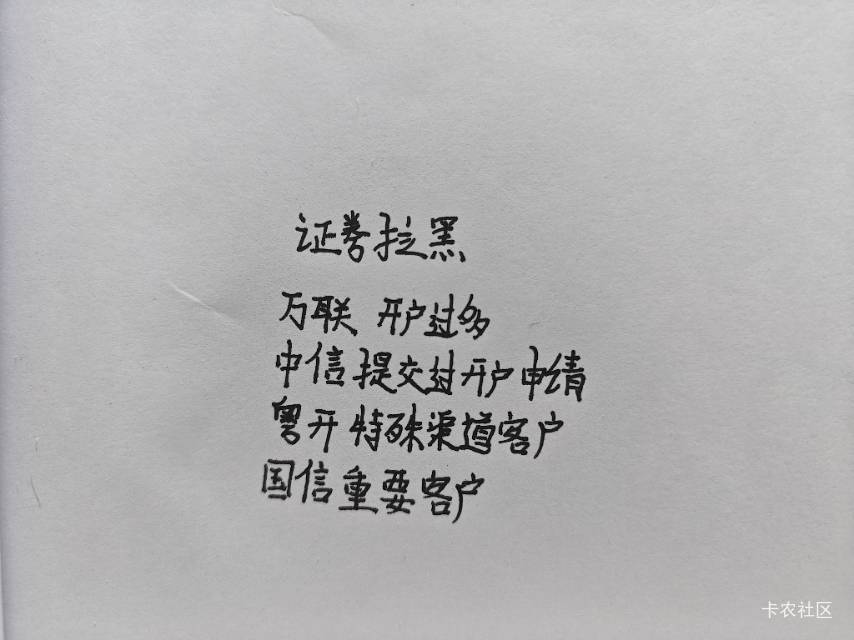 证券拉黑
万联 开户过多
中信提交过开户申请
粤开特殊渠道客户
国信重要客户
卡农社区